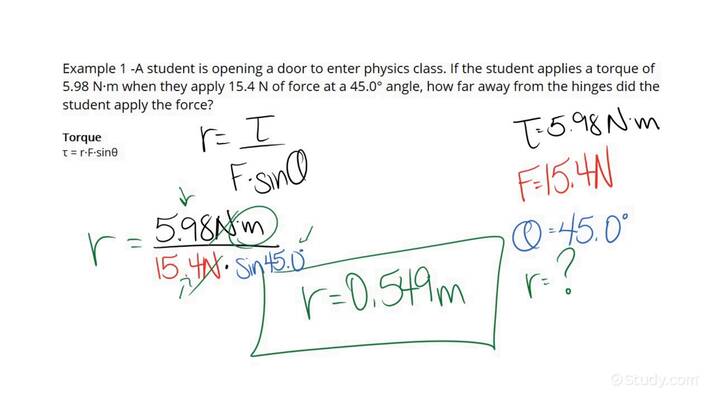 Example 1 -A student is opening a door to enter physics class. If the student applies a torque of
5.98 N·m when they apply 15.4 N of force at a 45.0° angle, how far away from the hinges did the
student apply the force?
Torque
τ = r·F·sinθ
r = τ
F·sinθ
τ=5.98N·m
F=15.4N
θ=45.0°
r=?
r = 5.98N·m
15.4N · sin45.0°
r=0.549m
Study.com